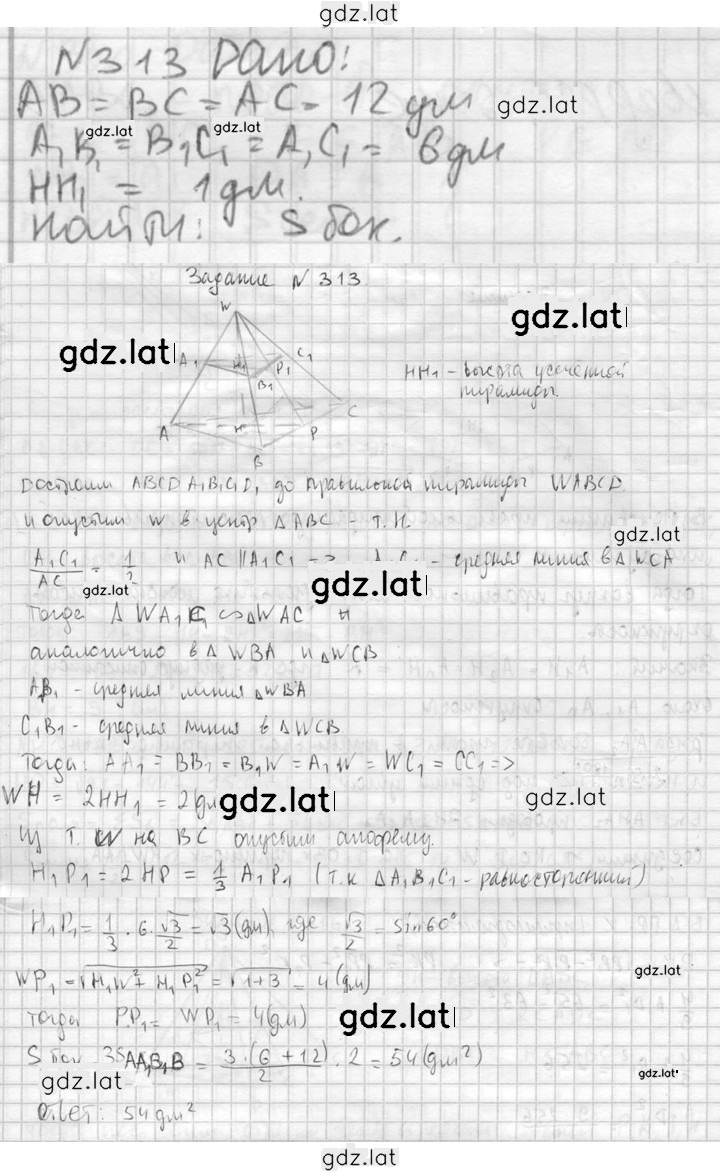 gdz.lat
N313 Дано:
AB = BC = AC = 12 дм
gdz.lat
gdz.lat gdz.lat
A₁B₁ = B₁C₁ = A₁C₁ = 6 дм
HH₁ = 1 дм.
Найти: S бок.
Задание N 313
gdz.lat
W
gdz.lat
A₁ H₁ C₁
B₁ P₁
HH₁ - высота усечённой
пирамиды.
C
A H P
B
Достроим ABCD A₁B₁C₁D₁ до правильной пирамиды WABCD
и опустим W в центр Δ ABC - т. H.
gdz.lat
A₁C₁/AC = 1/2 и AC ∥ A₁C₁ => A₁C₁ - средняя линия в Δ WCA
gdz.lat gdz.lat
Тогда Δ WA₁C₁ ∽ ΔWAC и
аналогично в Δ WBA и ΔWCB
A₁B₁ - средняя линия ΔWBA
C₁B₁ - средняя линия в ΔWCB
Тогда: AA₁ = BB₁ = B₁W = A₁W = WC₁ = CC₁ =>
WH = 2HH₁ = 2 дм
gdz.lat gdz.lat
Из т. W на BC опустим апофему.
H₁P₁ = 2 HP = 1/3 A₁P₁ (т.к ΔA₁B₁C₁ - равносторонний)
H₁P₁ = 1/3 · 6 · √3/2 = √3 (дм), где √3/2 = sin60°
gdz.lat
WP₁ = √H₁W² + H₁P₁² = √1+3 = 4 (дм)
тогда PP₁ = WP₁ = 4 (дм)
gdz.lat
S бок = 3S AA₁B₁B = 3·(6+12)/2 · 2 = 54 (дм²)
gdz.lat gdz.lat
Ответ: 54 дм²
gdz.lat